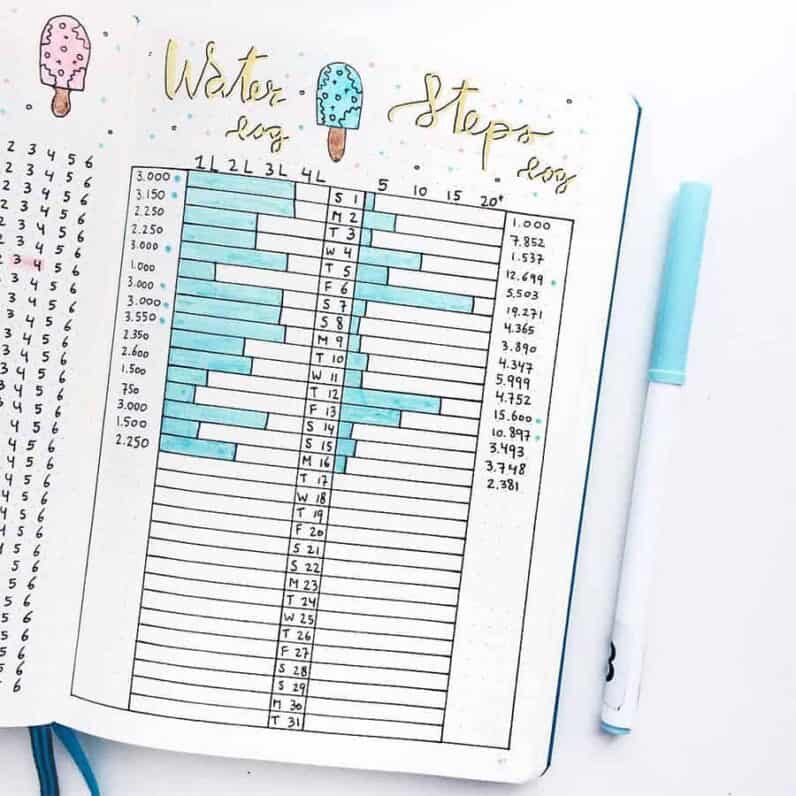 2 3 4 5 6
2 3 4 5 6
2 3 4 5 6
2 3 4 5 6
2 3 4 5 6
2 3 4 5 6
2 3 4 5 6
2 3 4 5 6
3 4 5 6
3 4 5 6
3 4 5 6
3 4 5 6
3 4 5 6
4 5 6
4 5 6
4 5 6
4 5 6
4 5 6
4 5 6
4 5 6
4 5 6
4 5 6
4 5 6
5 6
5 6
5 6
5 6
5 6
5 6
5 6
6
Water log
Steps log
1L 2L 3L 4L
5 10 15 20+
3.000 S 1 1.000
3.150 M 2 7.852
2.250 T 3 1.537
2.250 W 4 12.699
3.000 T 5 5.503
1.000 F 6 19.271
3.000 S 7 4.365
3.000 S 8 3.890
3.550 M 9 4.347
2.350 T 10 5.999
2.600 W 11 4.752
1.500 T 12 15.600
750 F 13 10.897
3.000 S 14 3.493
1.500 S 15 3.748
2.250 M 16 2.381
T 17
W 18
T 19
F 20
S 21
S 22
M 23
T 24
W 25
T 26
F 27
S 28
S 29
M 30
T 31